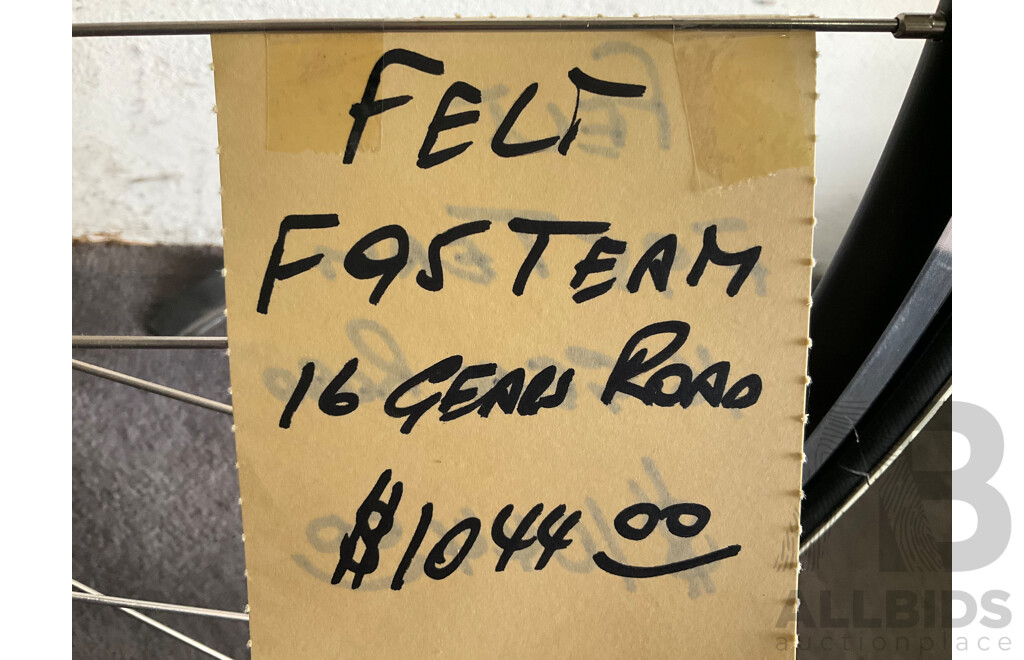 FELT
F95 TEAM
16 GEARS ROAD
$1044 00
AB
ALLBIDS
auctionplace